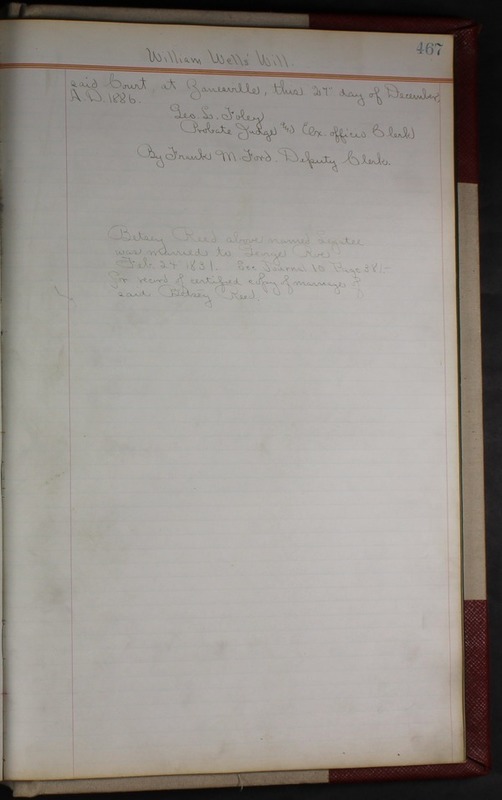 467
William Wells' Will.
said Court, at Zanesville, this 27 day of December
A.D. 1886.
Geo. L. Foley
Probate Judge & Ex. officio Clerk
By Frank M. Ford Deputy Clerk.
Betsey Reed above named
was married to George
Feb. 24 1831. See Journal Page 381
for record of certified copy of marriage of
said Betsey Reed.